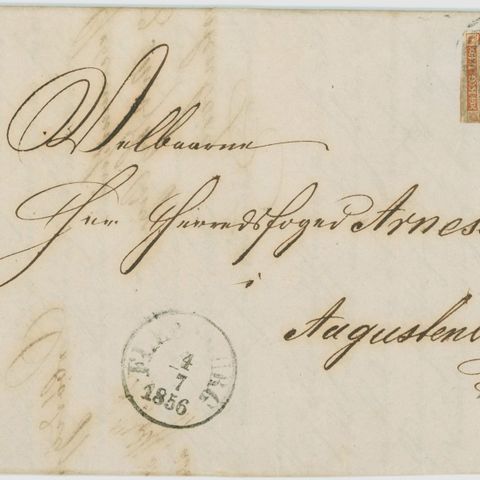 Velbaarne
Herr Herredsfoged Arnes
i
Augustenb
FLENSBURG
4
7
1856